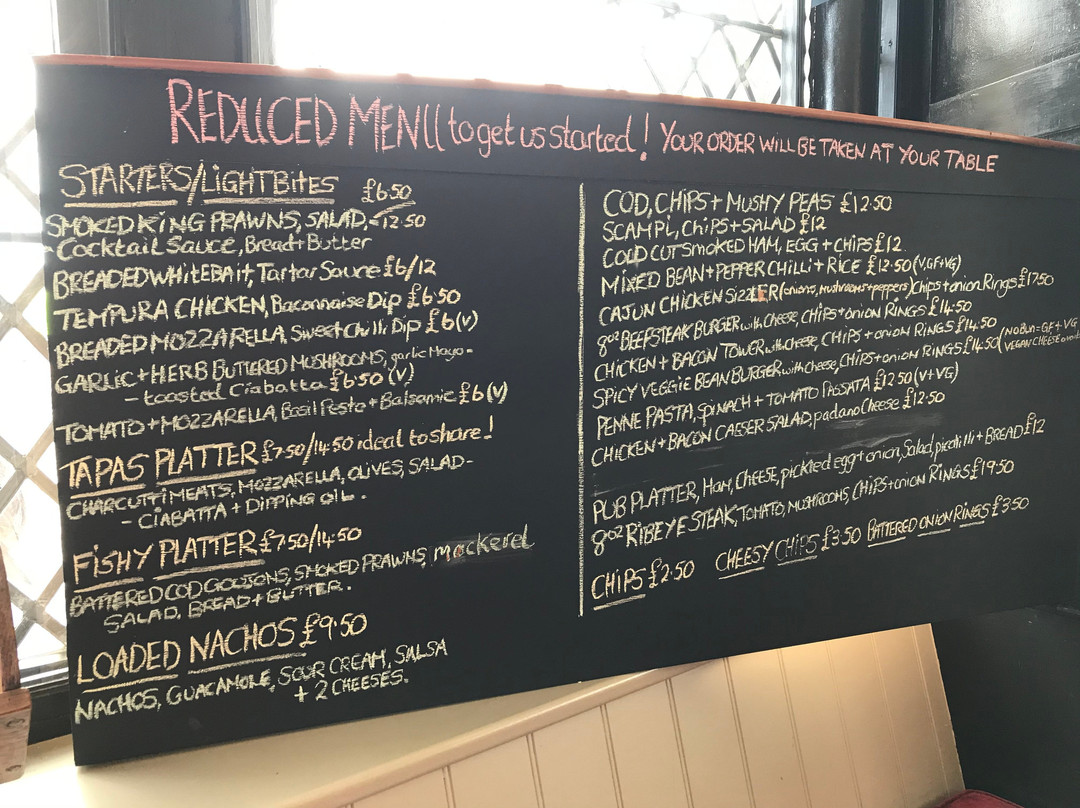 REDUCED MENU to get us started! YOUR ORDER WILL BE TAKEN AT YOUR TABLE
STARTERS/LIGHTBITES £6.50
SMOKED KING PRAWNS, SALAD, - 12.50
- Cocktail Sauce, Bread + Butter
BREADED WHITEBAIT, Tartar Sauce £6/12
TEMPURA CHICKEN, Baconnaise Dip £6.50
BREADED MOZZARELLA, Sweet Chilli Dip £6 (V)
GARLIC + HERB BUTTERED MUSHROOMS, garlic Mayo -
- toasted Ciabatta £6.50 (V)
TOMATO + MOZZARELLA, Basil Pesto + Balsamic £6 (V)
TAPAS PLATTER £7.50/14.50 ideal to share!
CHARCUTTI MEATS, MOZZARELLA, OLIVES, SALAD -
- CIABATTA + DIPPING OIL.
FISHY PLATTER £7.50/14.50
BATTERED COD GOUJONS, SMOKED PRAWNS, mackerel
SALAD, BREAD + BUTTER.
LOADED NACHOS £9.50
NACHOS, GUACAMOLE, SOUR CREAM, SALSA
+ 2 CHEESES.
COD, CHIPS + MUSHY PEAS £12.50
SCAMPI, CHIPS + SALAD £12
COLD CUT SMOKED HAM, EGG + CHIPS £12
MIXED BEAN + PEPPER CHILLI + RICE £12.50 (V, GF + VG)
CAJUN CHICKEN SIZZLER (onions, mushrooms + peppers) Chips + onion Rings £17.50
8oz BEEFSTEAK BURGER with Cheese, CHIPS + ONION RINGS £14.50
CHICKEN + BACON TOWER with cheese, CHIPS + onion RINGS £14.50
SPICY VEGGIE BEAN BURGER with cheese, CHIPS + onion RINGS £14.50 (NO BUN = GF + VG
VEGAN CHEESE
PENNE PASTA, SPINACH + TOMATO PASSATA £12.50 (V + VG)
CHICKEN + BACON CAESER SALAD, padano Cheese £12.50
PUB PLATTER, HAM, CHEESE, pickled egg + onion, Salad, picalilli + BREAD £12
8oz RIBEYE STEAK, TOMATO, MUSHROOMS, CHIPS + onion RINGS £19.50
CHIPS £2.50 CHEESY CHIPS £3.50 BATTERED ONION RINGS £3.50